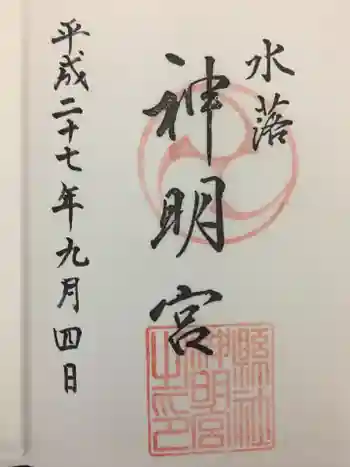 水落
神明宮
平成二十七年九月四日
縣社
神明宮
之印